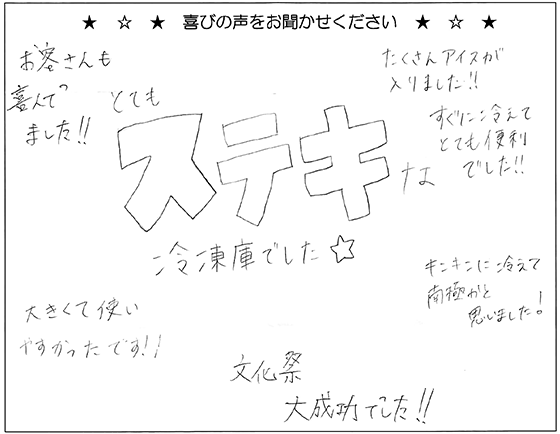 ★ ☆ ★ 喜びの声をお聞かせください ★ ☆ ★
お客さんも
喜んでっ
ました!!
たくさんアイスが
入りました!!
すぐに冷えて
とても便利
でした!!
とても
ステキ
な
冷凍庫でした☆
キンキンに冷えて
南極かと
思いました!
大きくて使い
やすかったです!!
文化祭
大成功でした!!